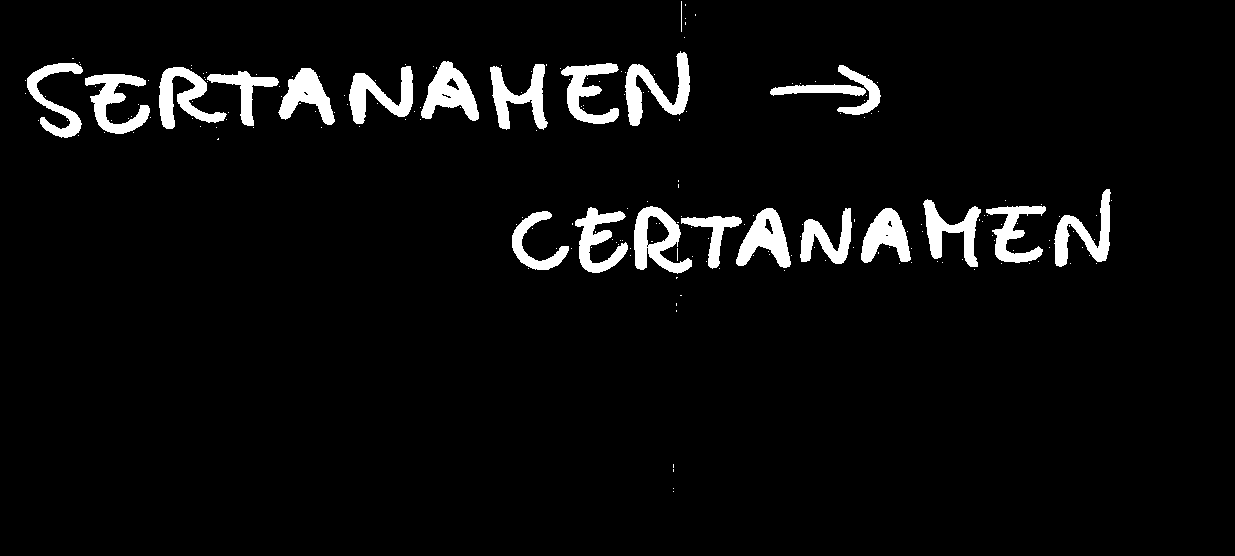 SERTANAMEN →
CERTANAMEN